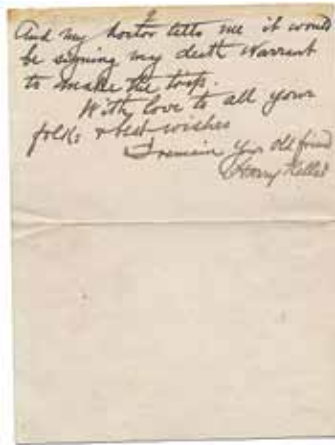 And my doctor tells me it would
be signing my death warrant
to make the trip.
With love to all your
folks & best wishes
I remain your old friend
Harry Kellar